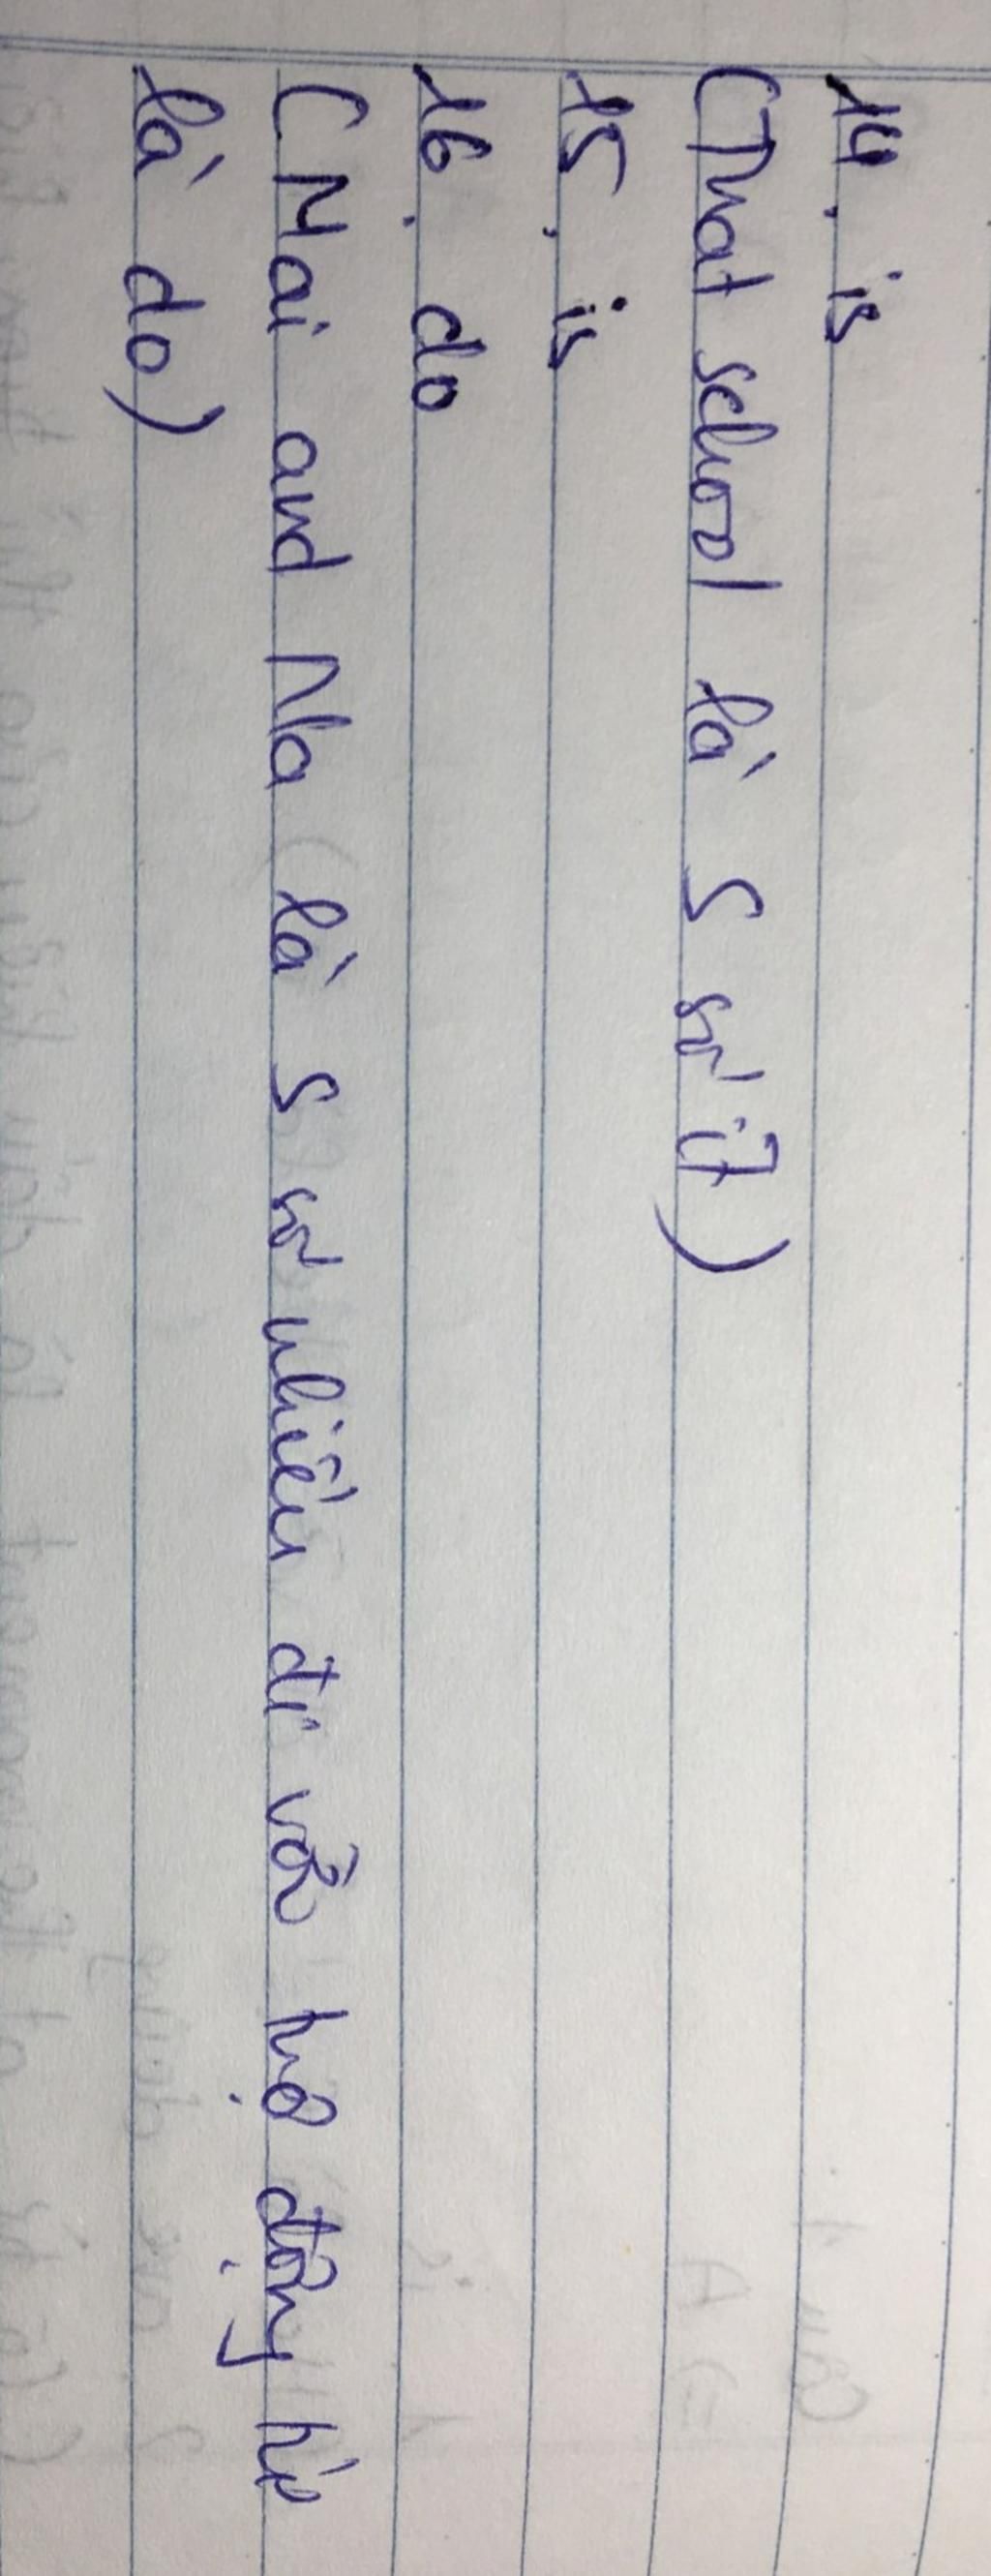 14. is
(That school là S số ít)
15. is
16. do
(Mai and Na là S số nhiều đi với trợ động từ
là do)